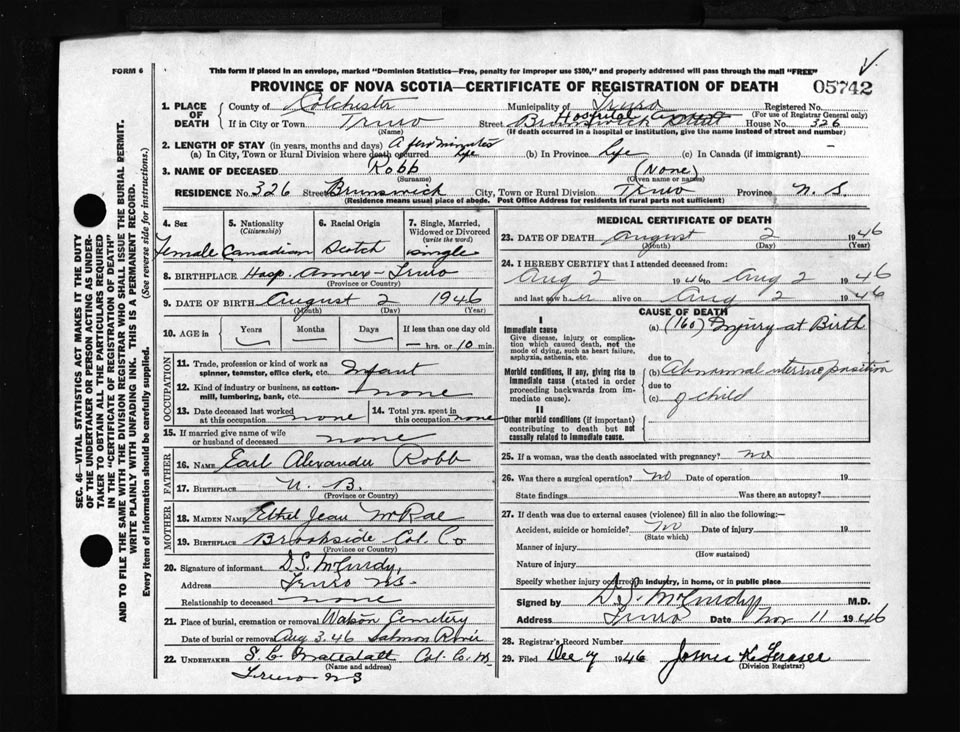 FORM 6
This form if placed in an envelope, marked "Dominion Statistics—Free, penalty for improper use $300," and properly addressed will pass through the mail "FREE"
PROVINCE OF NOVA SCOTIA—CERTIFICATE OF REGISTRATION OF DEATH
05742
SEC. 46—VITAL STATISTICS ACT MAKES IT THE DUTY
OF THE UNDERTAKER OR PERSON ACTING AS UNDER-
TAKER TO OBTAIN ALL THE PARTICULARS REQUIRED
IN THE "CERTIFICATE OF REGISTRATION OF DEATH"
AND TO FILE THE SAME WITH THE DIVISION REGISTRAR WHO SHALL ISSUE THE BURIAL PERMIT.
WRITE PLAINLY WITH UNFADING INK. THIS IS A PERMANENT RECORD.
Every item of information should be carefully supplied. (See reverse side for instructions.)
1. PLACE OF DEATH
County of Colchester Municipality of Truro Registered No.
(For use of Registrar General only)
Hospital
If in City or Town Truro Street Brunswick Street House No. 326
(Name) (If death occurred in a hospital or institution, give the name instead of street and number)
2. LENGTH OF STAY (in years, months and days) A few minutes
(a) In City, Town or Rural Division where death occurred life (b) In Province life (c) In Canada (if immigrant) —
3. NAME OF DECEASED Robb (None)
(Surname) (Given name or names)
RESIDENCE No. 326 Street Brunswick City, Town or Rural Division Truro Province N. S.
(Residence means usual place of abode. Post Office Address for residents in rural parts not sufficient)
4. Sex Female
5. Nationality (Citizenship) Canadian
6. Racial Origin Scotch
7. Single, Married, Widowed or Divorced (write the word) single
8. BIRTHPLACE Hosp. Annex - Truro
(Province or Country)
9. DATE OF BIRTH August 2 1946
(Month) (Day) (Year)
10. AGE in Years Months Days If less than one day
— hrs. or 10 min.
OCCUPATION
11. Trade, profession or kind of work as spinner, teamster, office clerk, etc. Infant
12. Kind of industry or business, as cotton-mill, lumbering, bank, etc. none
13. Date deceased last worked at this occupation none
14. Total yrs. spent in this occupation none
15. If married give name of wife or husband of deceased none
FATHER
16. NAME Earl Alexander Robb
17. BIRTHPLACE N. B.
(Province or Country)
MOTHER
18. MAIDEN NAME Ethel Jean McRae
19. BIRTHPLACE Brookside Col. Co
(Province or Country)
20. Signature of informant D.S. McCurdy,
Address Truro N.S.
Relationship to deceased none
21. Place of burial, cremation or removal Watson Cemetery
Date of burial or removal Aug 3. 46 Salmon River
22. UNDERTAKER Col. Co.
(Name and address)
Truro N S
MEDICAL CERTIFICATE OF DEATH
23. DATE OF DEATH August 2 1946
(Month) (Day) (Year)
24. I HEREBY CERTIFY that I attended deceased from:
Aug 2 1946 to Aug 2 1946
and last saw her alive on Aug 2 1946
CAUSE OF DEATH
I
Immediate cause
Give disease, injury or complication which caused death, not the mode of dying, such as heart failure, asphyxia, asthenia, etc.
(a) (160) Injury at Birth
due to
Morbid conditions, if any, giving rise to immediate cause (stated in order proceeding backwards from immediate cause).
(b) Abnormal position
due to
(c) of child
II
Other morbid conditions (if important) contributing to death but not causally related to immediate cause.
25. If a woman, was the death associated with pregnancy? no
26. Was there a surgical operation? no Date of operation 19
State findings Was there an autopsy?
27. If death was due to external causes (violence) fill in also the following:—
Accident, suicide or homicide? no Date of injury 19
(State which)
Manner of injury
(How sustained)
Nature of injury
Specify whether injury occurred in industry, in home, or in public place
Signed by D.S. McCurdy M.D.
Address Truro Date Nov 11 1946
28. Registrar's Record Number
29. Filed Dec 7 1946 James K. Fraser
(Division Registrar)